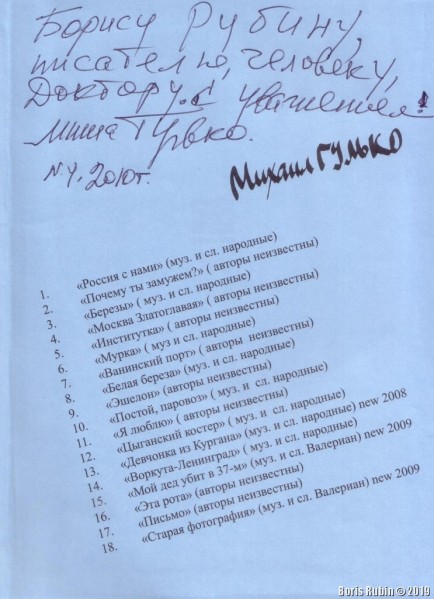 Борису Рубину,
писателю, человеку,
Доктору. с уважением!
Миша Гулько.
N.Y. 2010г.
Михаил ГУЛЬКО
1. «Россия с нами» (муз. и сл. народные)
2. «Почему ты замужем?» ( авторы неизвестны)
3. «Березы» ( муз. и сл. народные)
4. «Москва Златоглавая» ( авторы неизвестны)
5. «Институтка» ( авторы неизвестны)
6. «Мурка» ( муз и сл. народные)
7. «Ванинский порт» ( авторы неизвестны)
8. «Белая береза» (муз. и сл. народные)
9. «Эшелон» (авторы неизвестны)
10. «Постой, паровоз» ( муз. и сл. народные)
11. «Я люблю» ( авторы неизвестны)
12. «Цыганский костер» ( муз. и сл. народные)
13. «Девчонка из Кургана» (муз. и сл. народные) new 2008
14. «Воркута-Ленинград» ( муз. и сл. народные)
15. «Мой дед убит в 37-м» (муз. и сл. Валериан) new 2009
16. «Эта рота» (авторы неизвестны)
17. «Письмо» (авторы неизвестны)
18. «Старая фотография» (муз. и сл. Валериан) new 2009
Boris Rubin © 2019